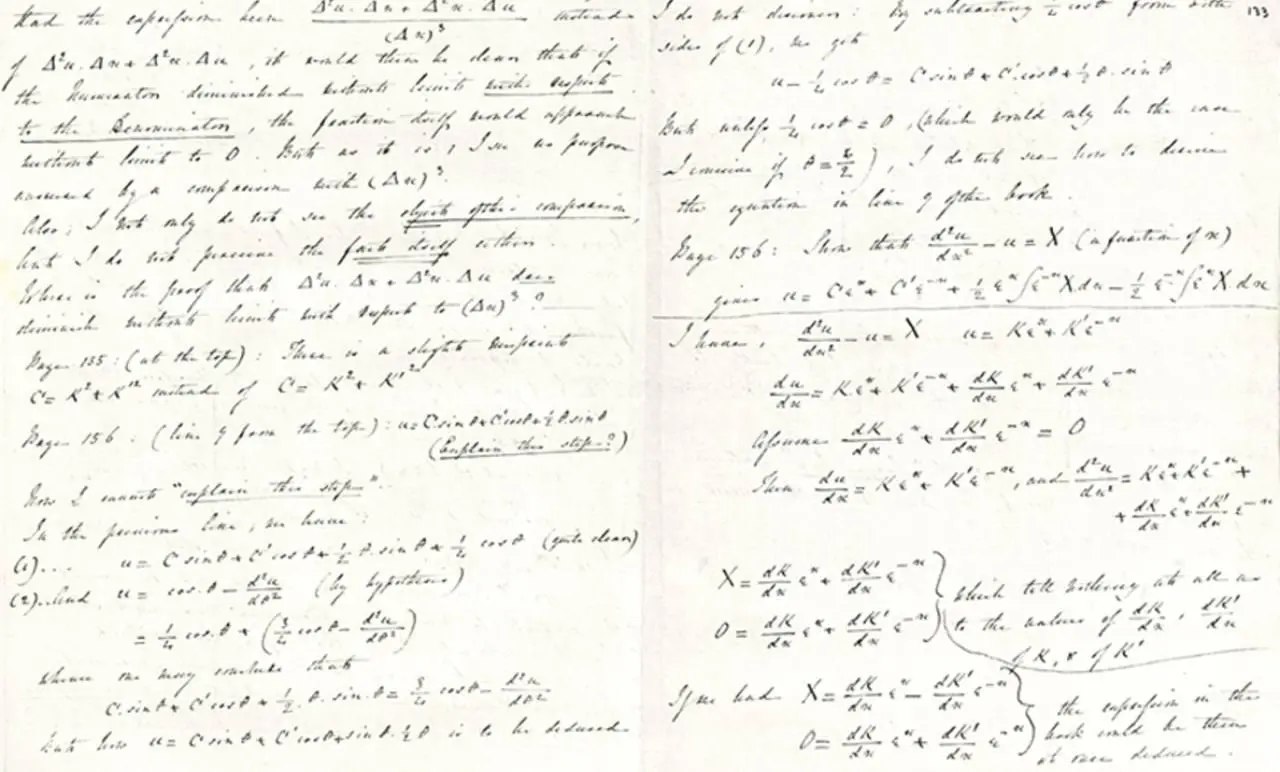 had the expression been Δ²u.Δx + Δ²x.Δu / (Δx)³ instead
of Δ²u.Δx + Δ²x.Δu, it would then be clear that if
the Numerator diminished without limit with respect
to the Denominator, the fraction itself would approach
without limit to 0. But as it is, I see no purpose
answered by a comparison with (Δx)³.
Also; I not only do not see the object of this comparison,
but I do not perceive the fact itself either.
Where is the proof that Δ²u.Δx + Δ²x.Δu does
diminish without limit with respect to (Δx)³?
Page 135: (at the top): There is a slight misprint
C = K² + K'² instead of C = K² + K'²
Page 156: (line 9 from the top): u = C sin θ + C' cos θ + ½ θ. sin θ
(Explain this step?)
Now I cannot "explain this step".
In the previous line, we have:
(1).... u = C sin θ + C' cos θ + ½ θ. sin θ + ¼ cos θ (quite clear)
(2).. And u = cos. θ - d²u/dθ² (by hypothesis)
= ¼ cos. θ + (¾ cos θ - d²u/dθ²)
whence one may conclude that
C. sin θ + C' cos θ + ½. θ. sin. θ = ¾ cos θ - d²u/dθ²
But how u = C sin θ + C' cos θ + sin θ. ½ θ is to be deduced
133
I do not discover: By subtracting ¼ cos θ from both
sides of (1), we get
u - ¼ cos θ = C sin θ + C' cos θ + ½ θ. sin θ
But unless ¼ cos θ = 0, (which would only be the case
I conceive if θ = π/2), I do not see how to derive
the equation in line 9 of the book.
Page 156: Show that d²u/dx² - u = X (a function of x)
gives u = Cεˣ + C'ε⁻ˣ + ½ εˣ∫ε⁻ˣ X dx - ½ ε⁻ˣ∫εˣ X. dx
I have, d²u/dx² - u = X u = Kεˣ + K'ε⁻ˣ
du/dx = Kεˣ - K'ε⁻ˣ + dK/dx εˣ + dK'/dx ε⁻ˣ
Assume dK/dx εˣ + dK'/dx ε⁻ˣ = 0
Then du/dx = Kεˣ + K'ε⁻ˣ, and d²u/dx² = Kεˣ + K'ε⁻ˣ +
+ dK/dx εˣ + dK'/dx ε⁻ˣ
X = dK/dx εˣ + dK'/dx ε⁻ˣ
0 = dK/dx εˣ + dK'/dx ε⁻ˣ
which tell nothing at all as
to the values of dK/dx, dK'/dx
of K, & of K'
If we had X = dK/dx εˣ - dK'/dx ε⁻ˣ
0 = dK/dx εˣ + dK'/dx ε⁻ˣ
the expression in the
book could be then
at once deduced.